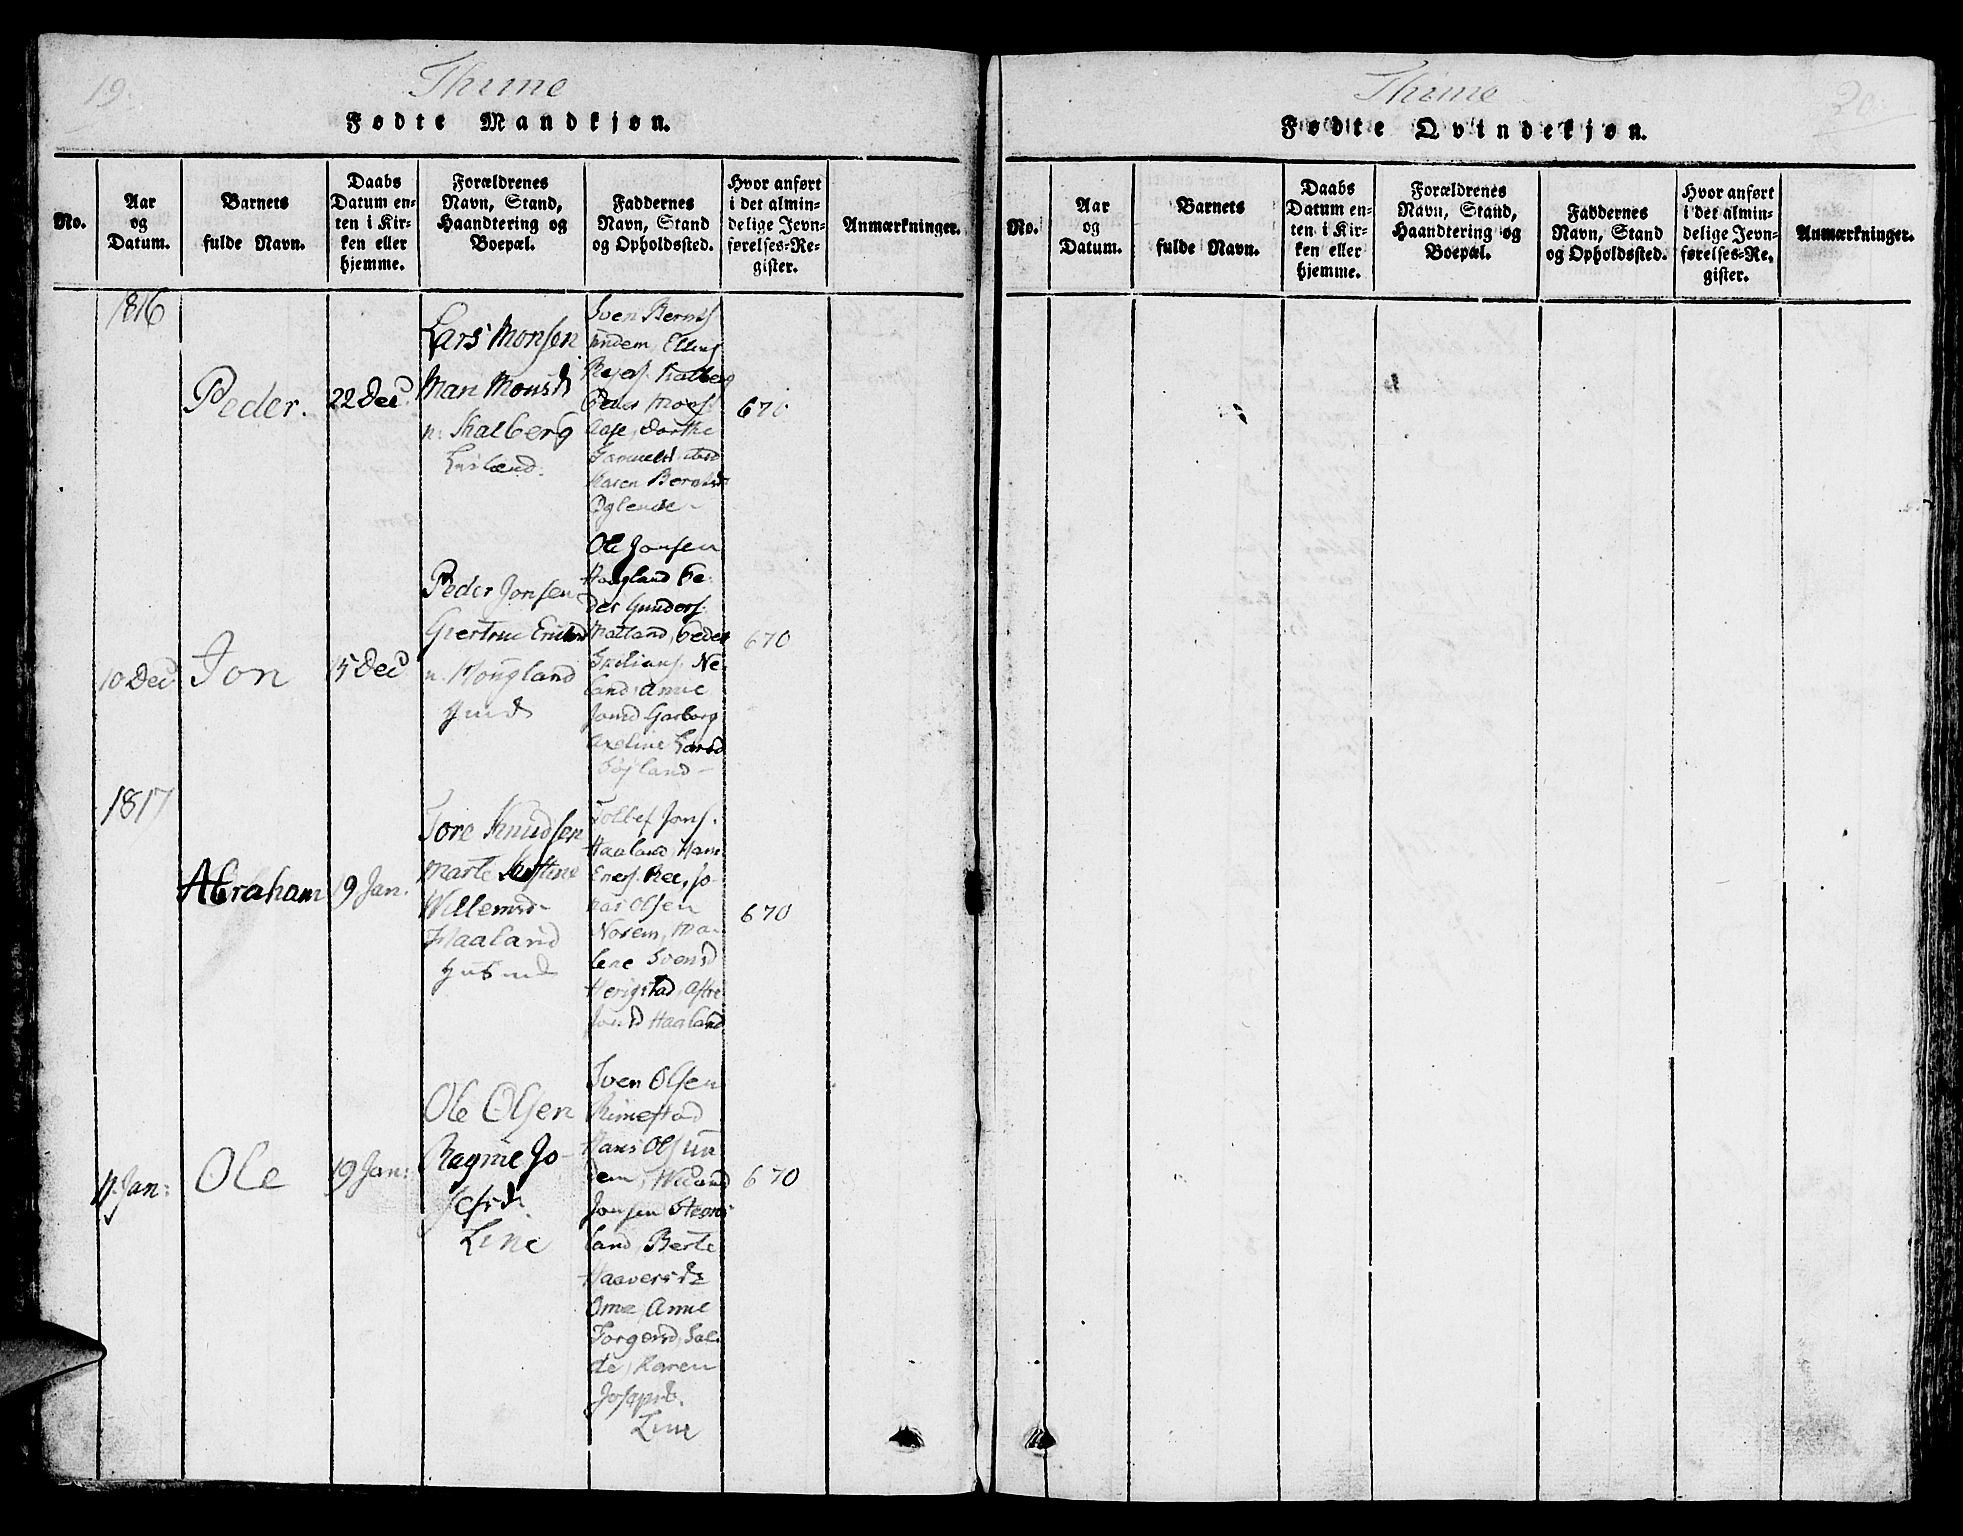 19.
Thime
Fødte Mandkjøn.
No.
Aar
og
Datum.
Barnets
fulde Navn.
Daabs
Datum en-
ten i Kir-
ken eller
hjemme.
Forældrenes
Navn, Stand,
Haandtering og
Boepæl.
Faddernes
Navn, Stand
og Opholdssted.
Hvor anført
i det almin-
delige Jevn-
førelses-Re-
gister.
Anmærkninger.
1816
Peder.
22 Dec
Lars Monsen
Mari Monsd
Kalberg
Sven Bernts
Undem, Elling
Kalberg
Peder
Aase, Dorthe
Samuelsd
Karen Berntsd
Øglende
670
10 Dec
Jon
15 Dec
Peder Jonsen
Giertrue
Hougland
Ole Jonsen
Hougland Pe-
der Gunders.
Motland, Peder
Ne-
land, Anne
Jonsd Garborg
Axeline Larsd
670
1817
Abraham
19 Jan.
Tore Knudsen
Marte
Willemsd
Haaland
Tollef Jons.
Haaland, Hans
Eners. Ree, Jo-
nas Olsen
Norem, Ma-
lene Svensd
Herigstad,
Jonsd Haaland
670
11 Jan:
Ole
19 Jan:
Ole Olsen
Ragnie Jo-
sefsd.
Line
Sven Olsen
Rimestad
Hans Ols Un-
dem,
Jonsen Steens
land, Berte
Haaversd
Ome, Anne
Torgersd, Sæl-
de, Karen
Josepsd.
Line
670
Thime
20
Fødte Qvindekjøn.
No.
Aar
og
Datum.
Barnets
fulde Navn.
Daabs
Datum en-
ten i Kir-
ken eller
hjemme.
Forældrenes
Navn, Stand,
Haandtering og
Boepæl.
Faddernes
Navn, Stand
og Opholdssted.
Hvor anført
i det almin-
delige Jevn-
førelses-Re-
gister.
Anmærkninger.